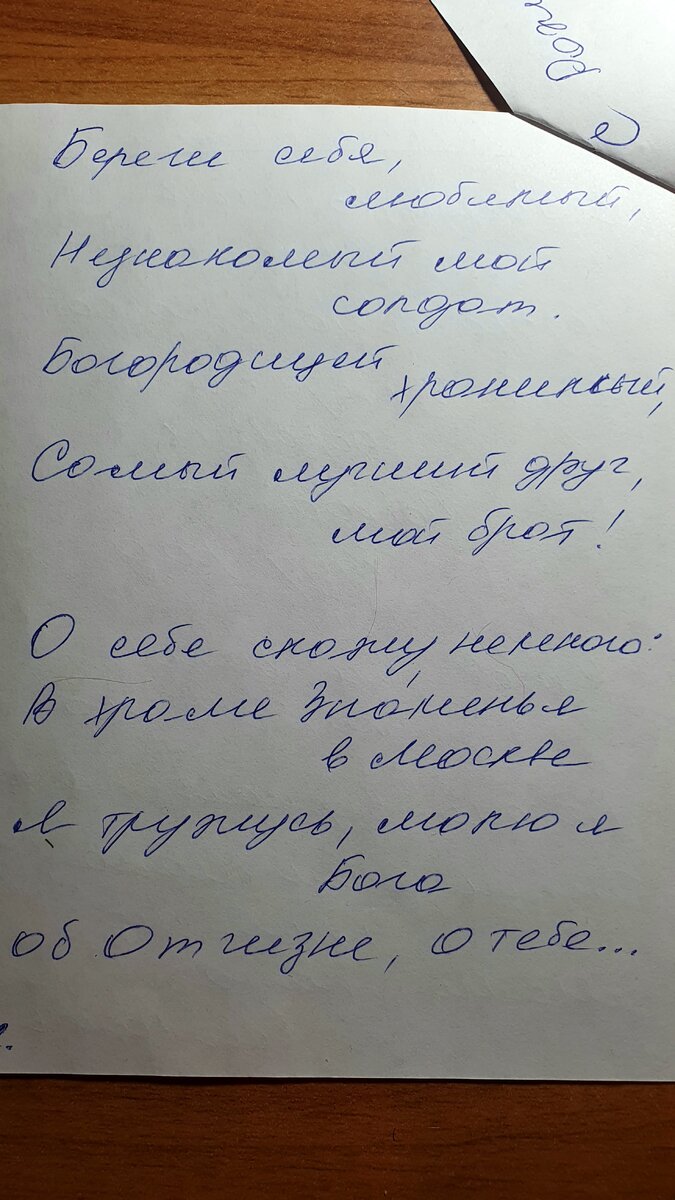 Береги себя,
любимый,
Незнакомый мой
солдат.
Богородицей
хранимый,
Самый лучший друг,
мой брат!
О себе скажу немного:
В храме Знаменья
в Москве
Я тружусь, молю я
Бога
об Отчизне, о тебе...